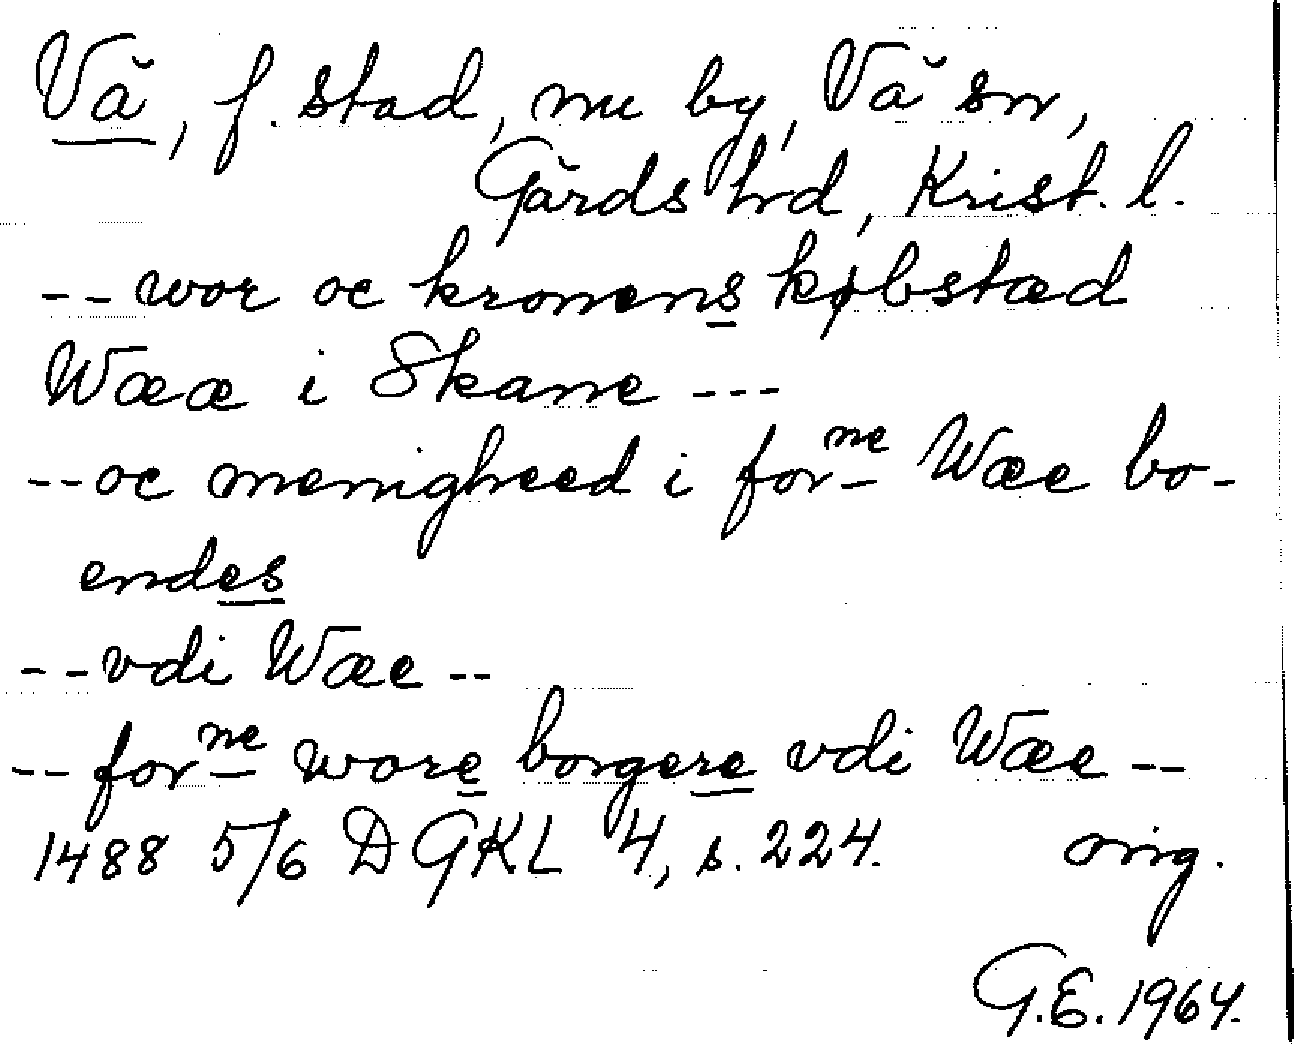 Vå, f. stad, nu by, Vå sn,
Gärds hrd, Krist. l.
-- wor oc kronens købstæd
Wææ i Skane ---
-- oc menigheed i forne Wæe bo-
endes
-- vdi Wæe --
-- forne wore borgere vdi Wæe --
1488 5/6 DGKL 4, s. 224. orig.
G.E. 1964.